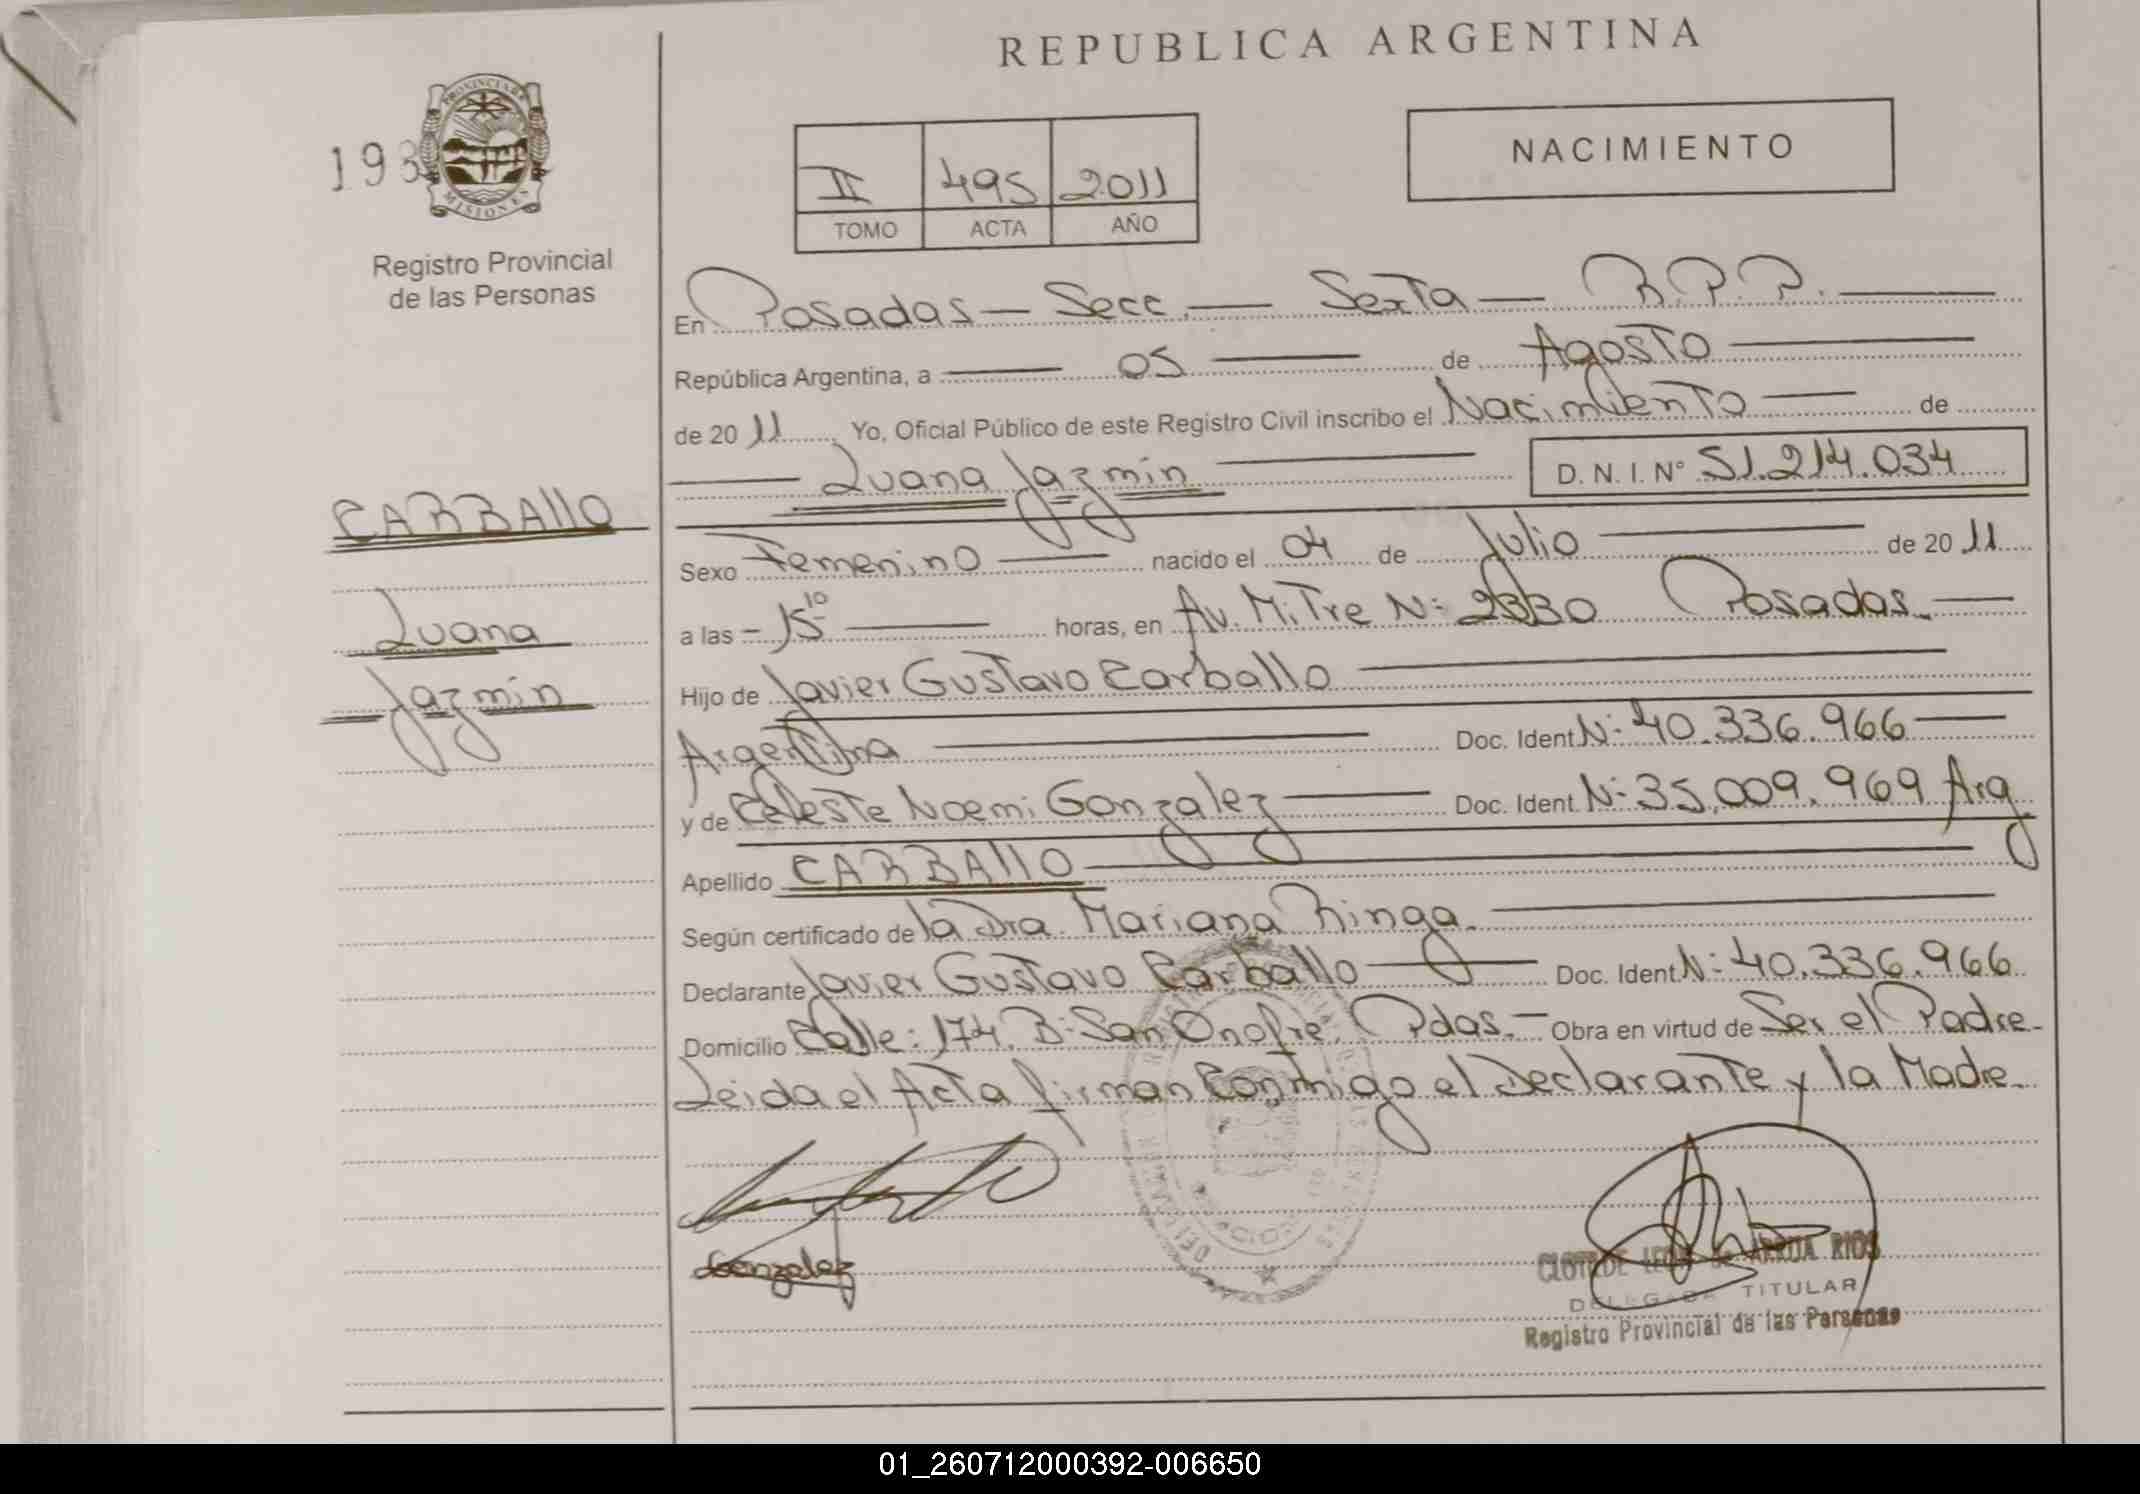 REPUBLICA ARGENTINA
193
PROVINCIA DE
MISIONES
Registro Provincial
de las Personas
NACIMIENTO
II 495 2011
TOMO ACTA AÑO
En Posadas — Secc. — Sexta — R.P.P. —
República Argentina, a — 05 — de Agosto —
de 20 11 Yo, Oficial Público de este Registro Civil inscribo el Nacimiento — de
— Luana Jazmín — D. N. I. N° 51.214.034
CARBAllO
Luana
Jazmín
Sexo Femenino — nacido el 04 de Julio — de 20 11
a las - 15 10 — horas, en Av. Mitre N: 2330 Posadas. —
Hijo de Javier Gustavo Carballo —
Argentina — Doc. Ident. N: 40.336.966 —
y de Celeste Noemi Gonzalez — Doc. Ident. N: 35.009.969 Arg
Apellido CARBAllO —
Según certificado de la Dra. Mariana Ringa. —
Declarante Javier Gustavo Carballo — Doc. Ident. N: 40.336.966
Domicilio Calle: 174. B: San Onofre. Pdas. — Obra en virtud de Ser el Padre.
Leida el Acta firman Conmigo el Declarante y la Madre.
Gonzalez
CLOTILDE LEON de ARRUA RIOS
DELEGADA TITULAR
Registro Provincial de las Personas
01_260712000392-006650